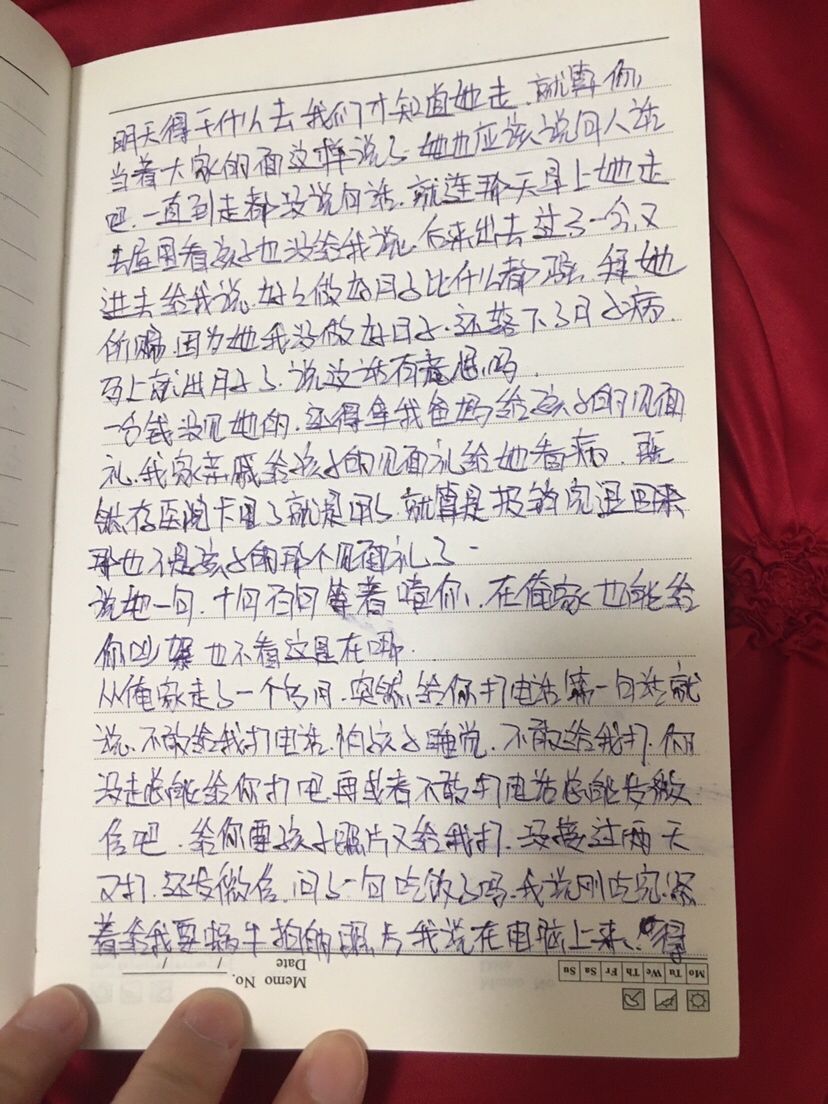 明天得干什么去我们才知道她走.就算你
当着大家的面这样说了她也应该说句人话
吧.一直到走都没说句话.就连那天早上她走
去屋里看孩子也没给我说.后来出去过了一会又
进去给我说.好好做好月子比什么都强.拜她
所赐.因为她我没做好月子.还落下了月子病.
马上就出月子了.说这话有意思吗.
一分钱没见她的.还得拿我爸妈给孩子的见面
礼.我家亲戚给孩子的见面礼给她看病.既
然存医院卡里了就是用了.就算是报销完退回来
那也不是孩子的那个见面礼了.
说她一句.十句百句等着噎你.在俺家也能给
你吵架也不看这是在哪.
从俺家走了一个多月.突然给你打电话第一句话就
说.不敢给我打电话.怕孩子睡觉.不敢给我打.你
没走总能给你打吧.再或者不敢打电话总能发微
信吧.给你要孩子照片又给我打.没接过两天
又打.还发微信.问了一句吃饭了吗.我说刚吃完.
着给我要蜗牛拍的照片我说在电脑上来.得
Memo No.
Date / /
Mo Tu We Th Fr Sa Su